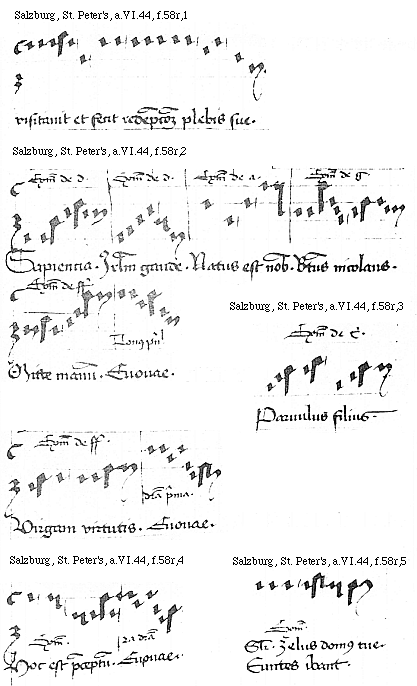 Salzburg, St. Peter's, a.VI.44, f.58r,1
visitauit et fecit redẽptoẽ plebis sue.
Salzburg, St. Peter's, a.VI.44, f.58r,2
Exm̃ de d. Exm̃ de d. Exm̃ de a. Exm̃ de g
Sapiencia. Jrlm̃ gaude. Natus est nob. Btus nicolaus.
Exm̃ de ff
Mitte manũ. Euouae.
Salzburg, St. Peter's, a.VI.44, f.58r,3
Exm̃ de c.
Paruulus filius.
Exm̃ de ff.
dr̃a p̃ma.
Uirgam virtutis. Euouae.
Salzburg, St. Peter's, a.VI.44, f.58r,4
Exm̃.
Hoc est p̃ceptũ. Euouae.
Salzburg, St. Peter's, a.VI.44, f.58r,5
Exm̃.
Zelus domus tue.
Euntes ibant.